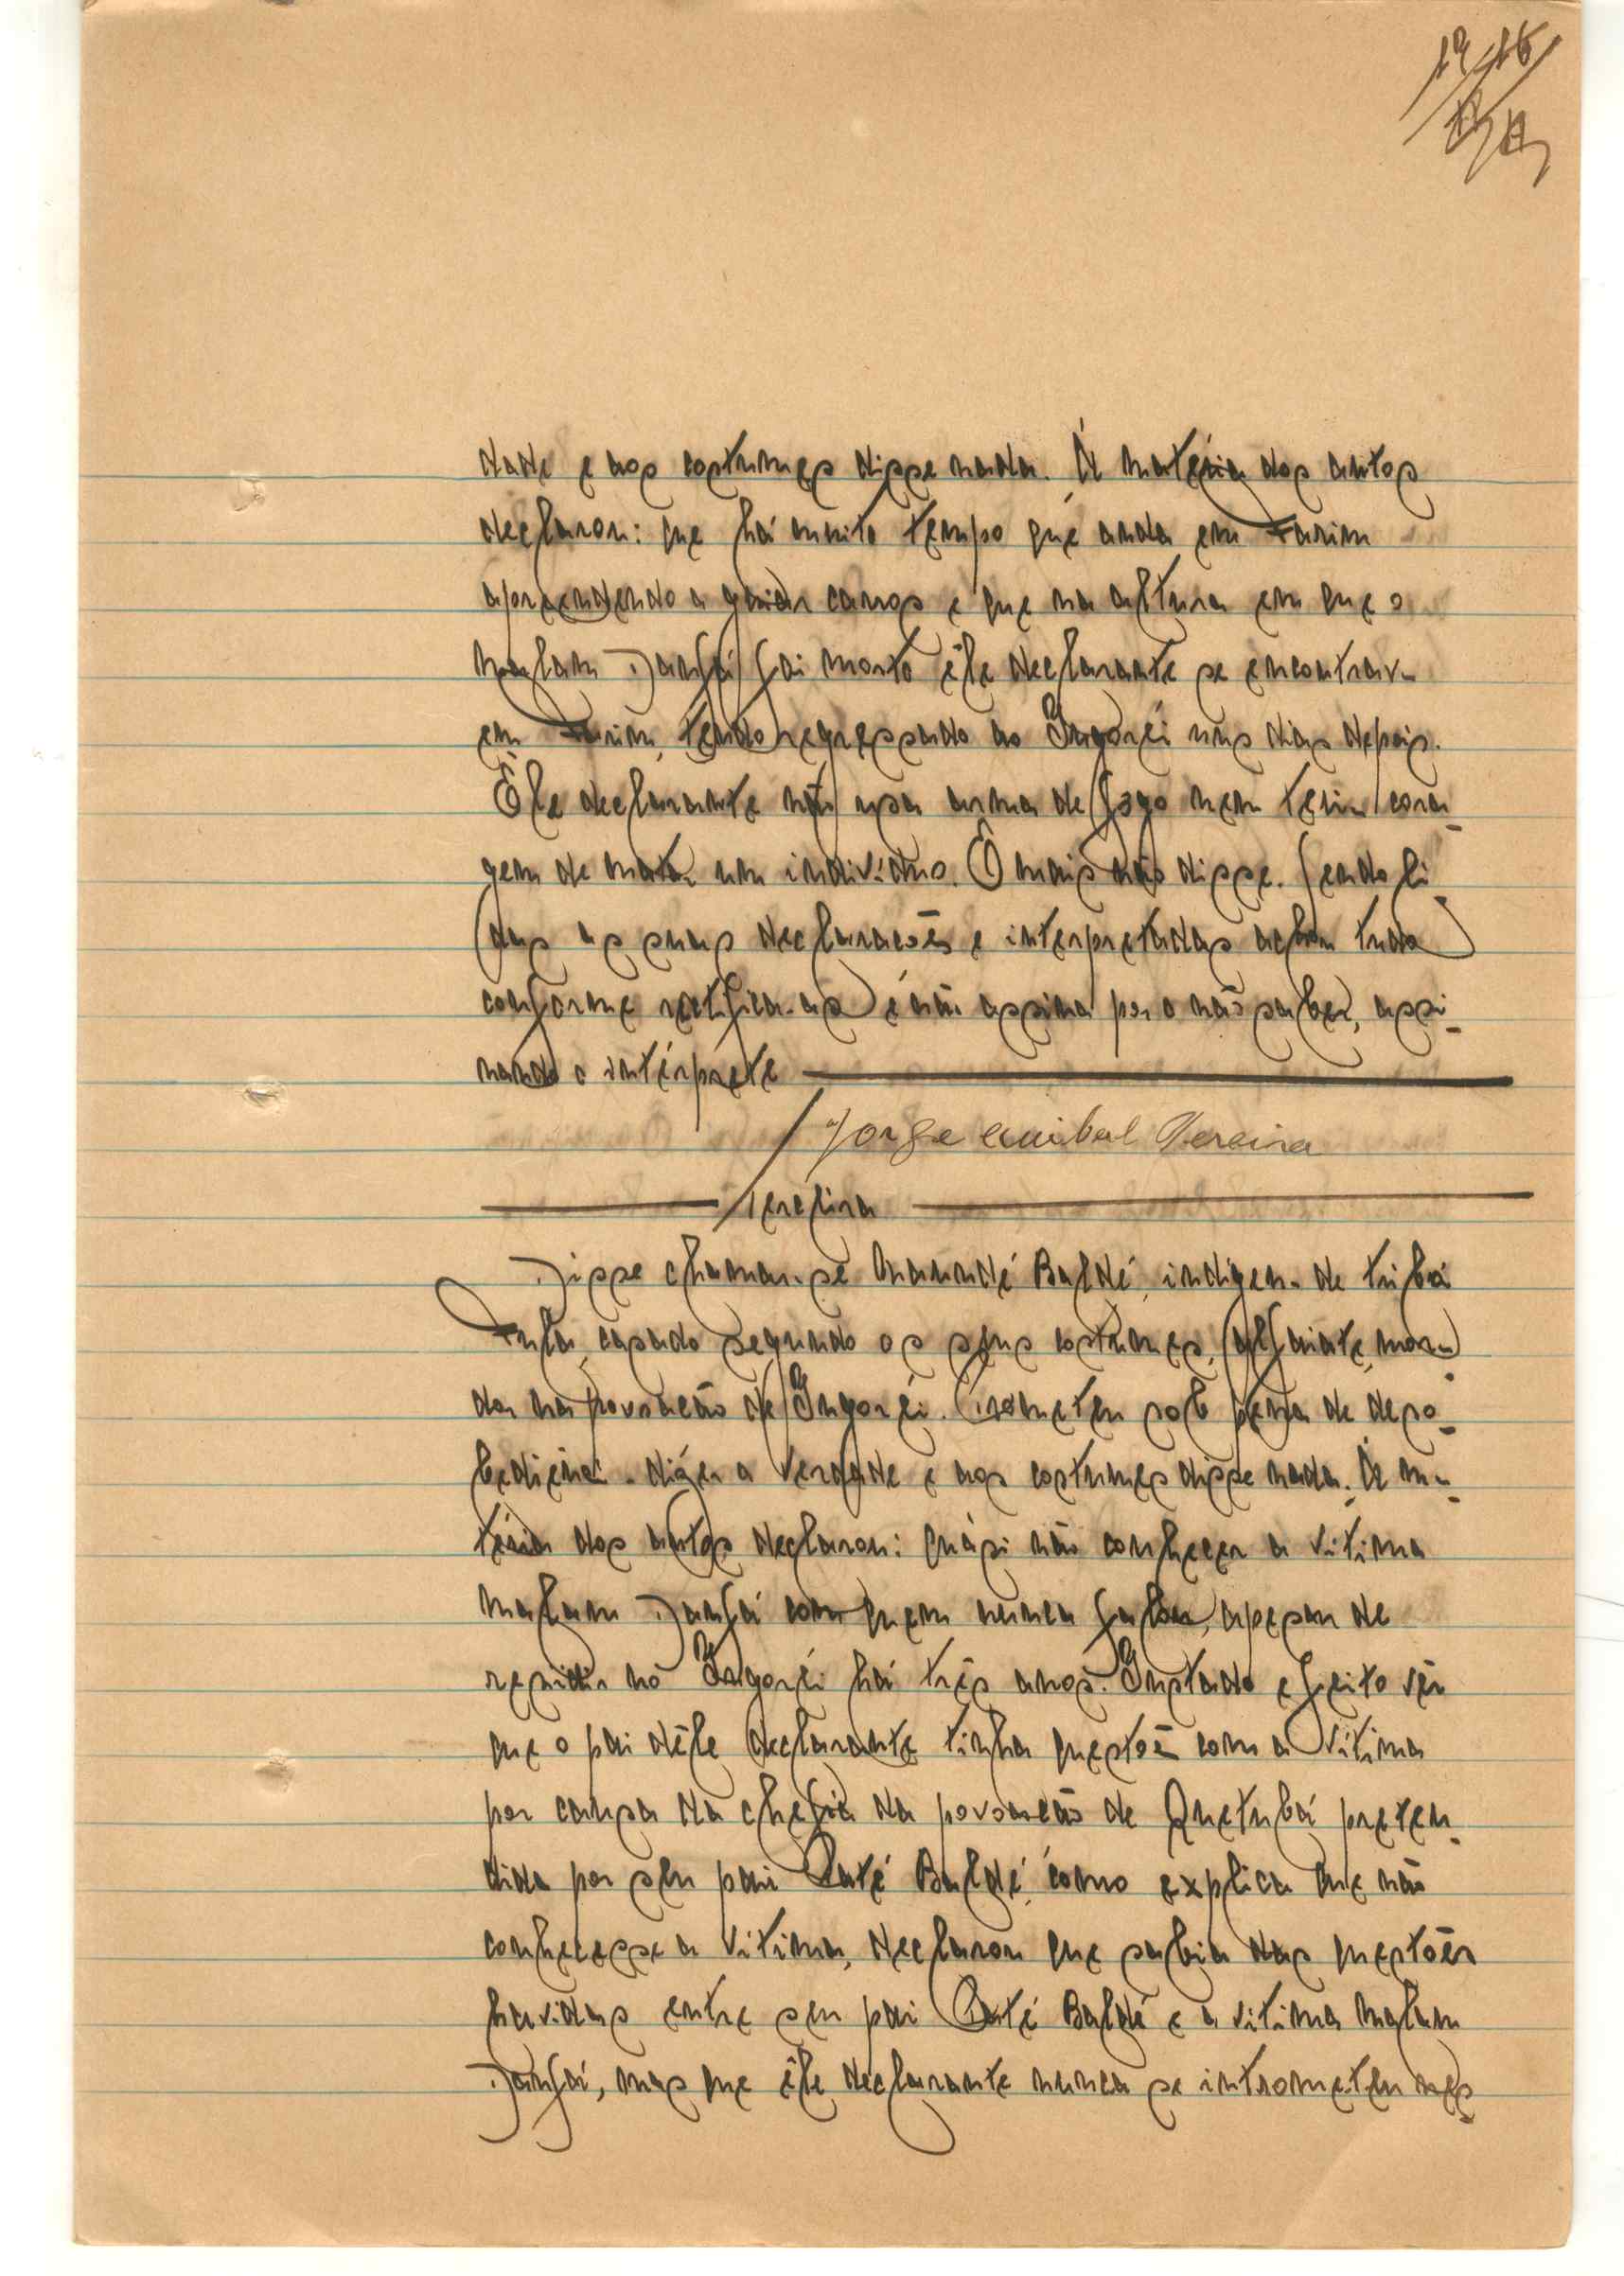 dade e aos costumes disse nada. Á matéria dos autos
declarou: que há muito tempo que anda em Farim
aprendendo a guiar carros e que na altura em que o
Malam Danfá foi morto êle declarante se encontrava
em Farim, tendo regressado ao Ingoréi uns dias depois.
Êle declarante não usa arma de fogo nem teria cora-
gem de matar um individuo. E mais não disse. Sendo li-
das as suas declaracões e interpretadas achou tudo
conforme ratifica-as e não assina por o não saber, assi-
nando o intérprete
Jorge Anibal Pereira
Terceira
Disse chamar-se Mamadé Baldé, indigena de tribo
Fula, casado segundo os seus costumes, alfaiate, mora-
dor na povoacão de Ingoréi. Prometeu sob pena de deso-
bediencia dizer a verdade e aos costumes disse nada. Á ma-
téria dos autos declarou: quási não conhecer a vitima
Malam Danfá com quem nunca falou, apesar de
residir no Ingoréi há três anos. Instado e feito vêr
que o pai dêle declarante tinha questões com a vitima
por causa da chefia da povoacão de Quetubá preten-
dida por seu pai Saté Baldé, como explica que não
conhecesse a vitima, declarou que sabia das questões
havidas entre seu pai Saté Baldé e a vitima Malam
Danfá, mas que êle declarante nunca se intrometeu nes